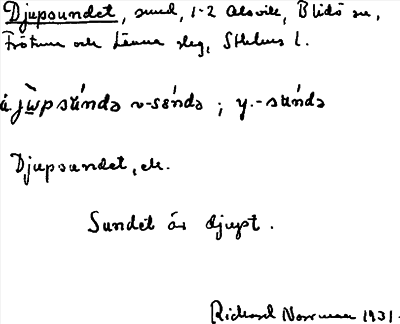 Djupsundet, sund, 1-2 Alsvik, Blidö sn,
Frötuna och Länna slg, Sthlms l.
å. jwpsúndə v-séndə ; y.-súndə
Djupsundet, ek.
Sundet är djupt.
Richard Norrman 1931.